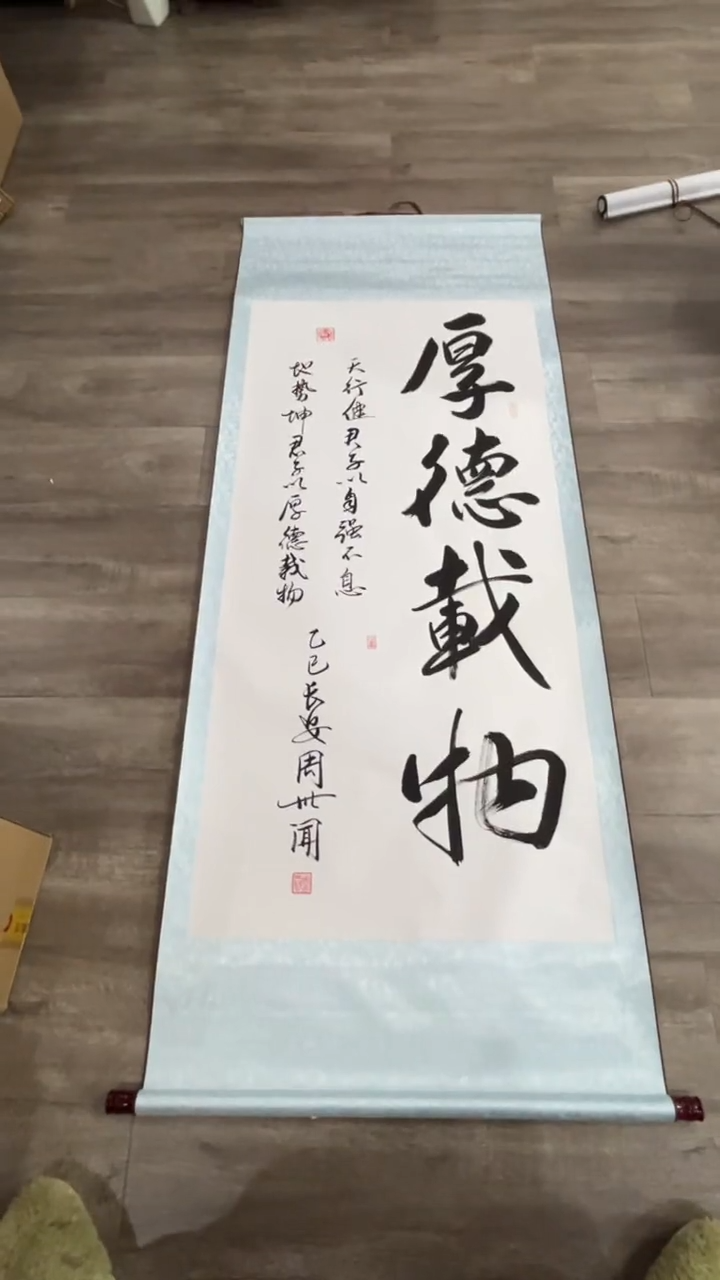 厚德載物
天行健君子以自强不息
地势坤君子以厚德载物
乙巳长安周世闻